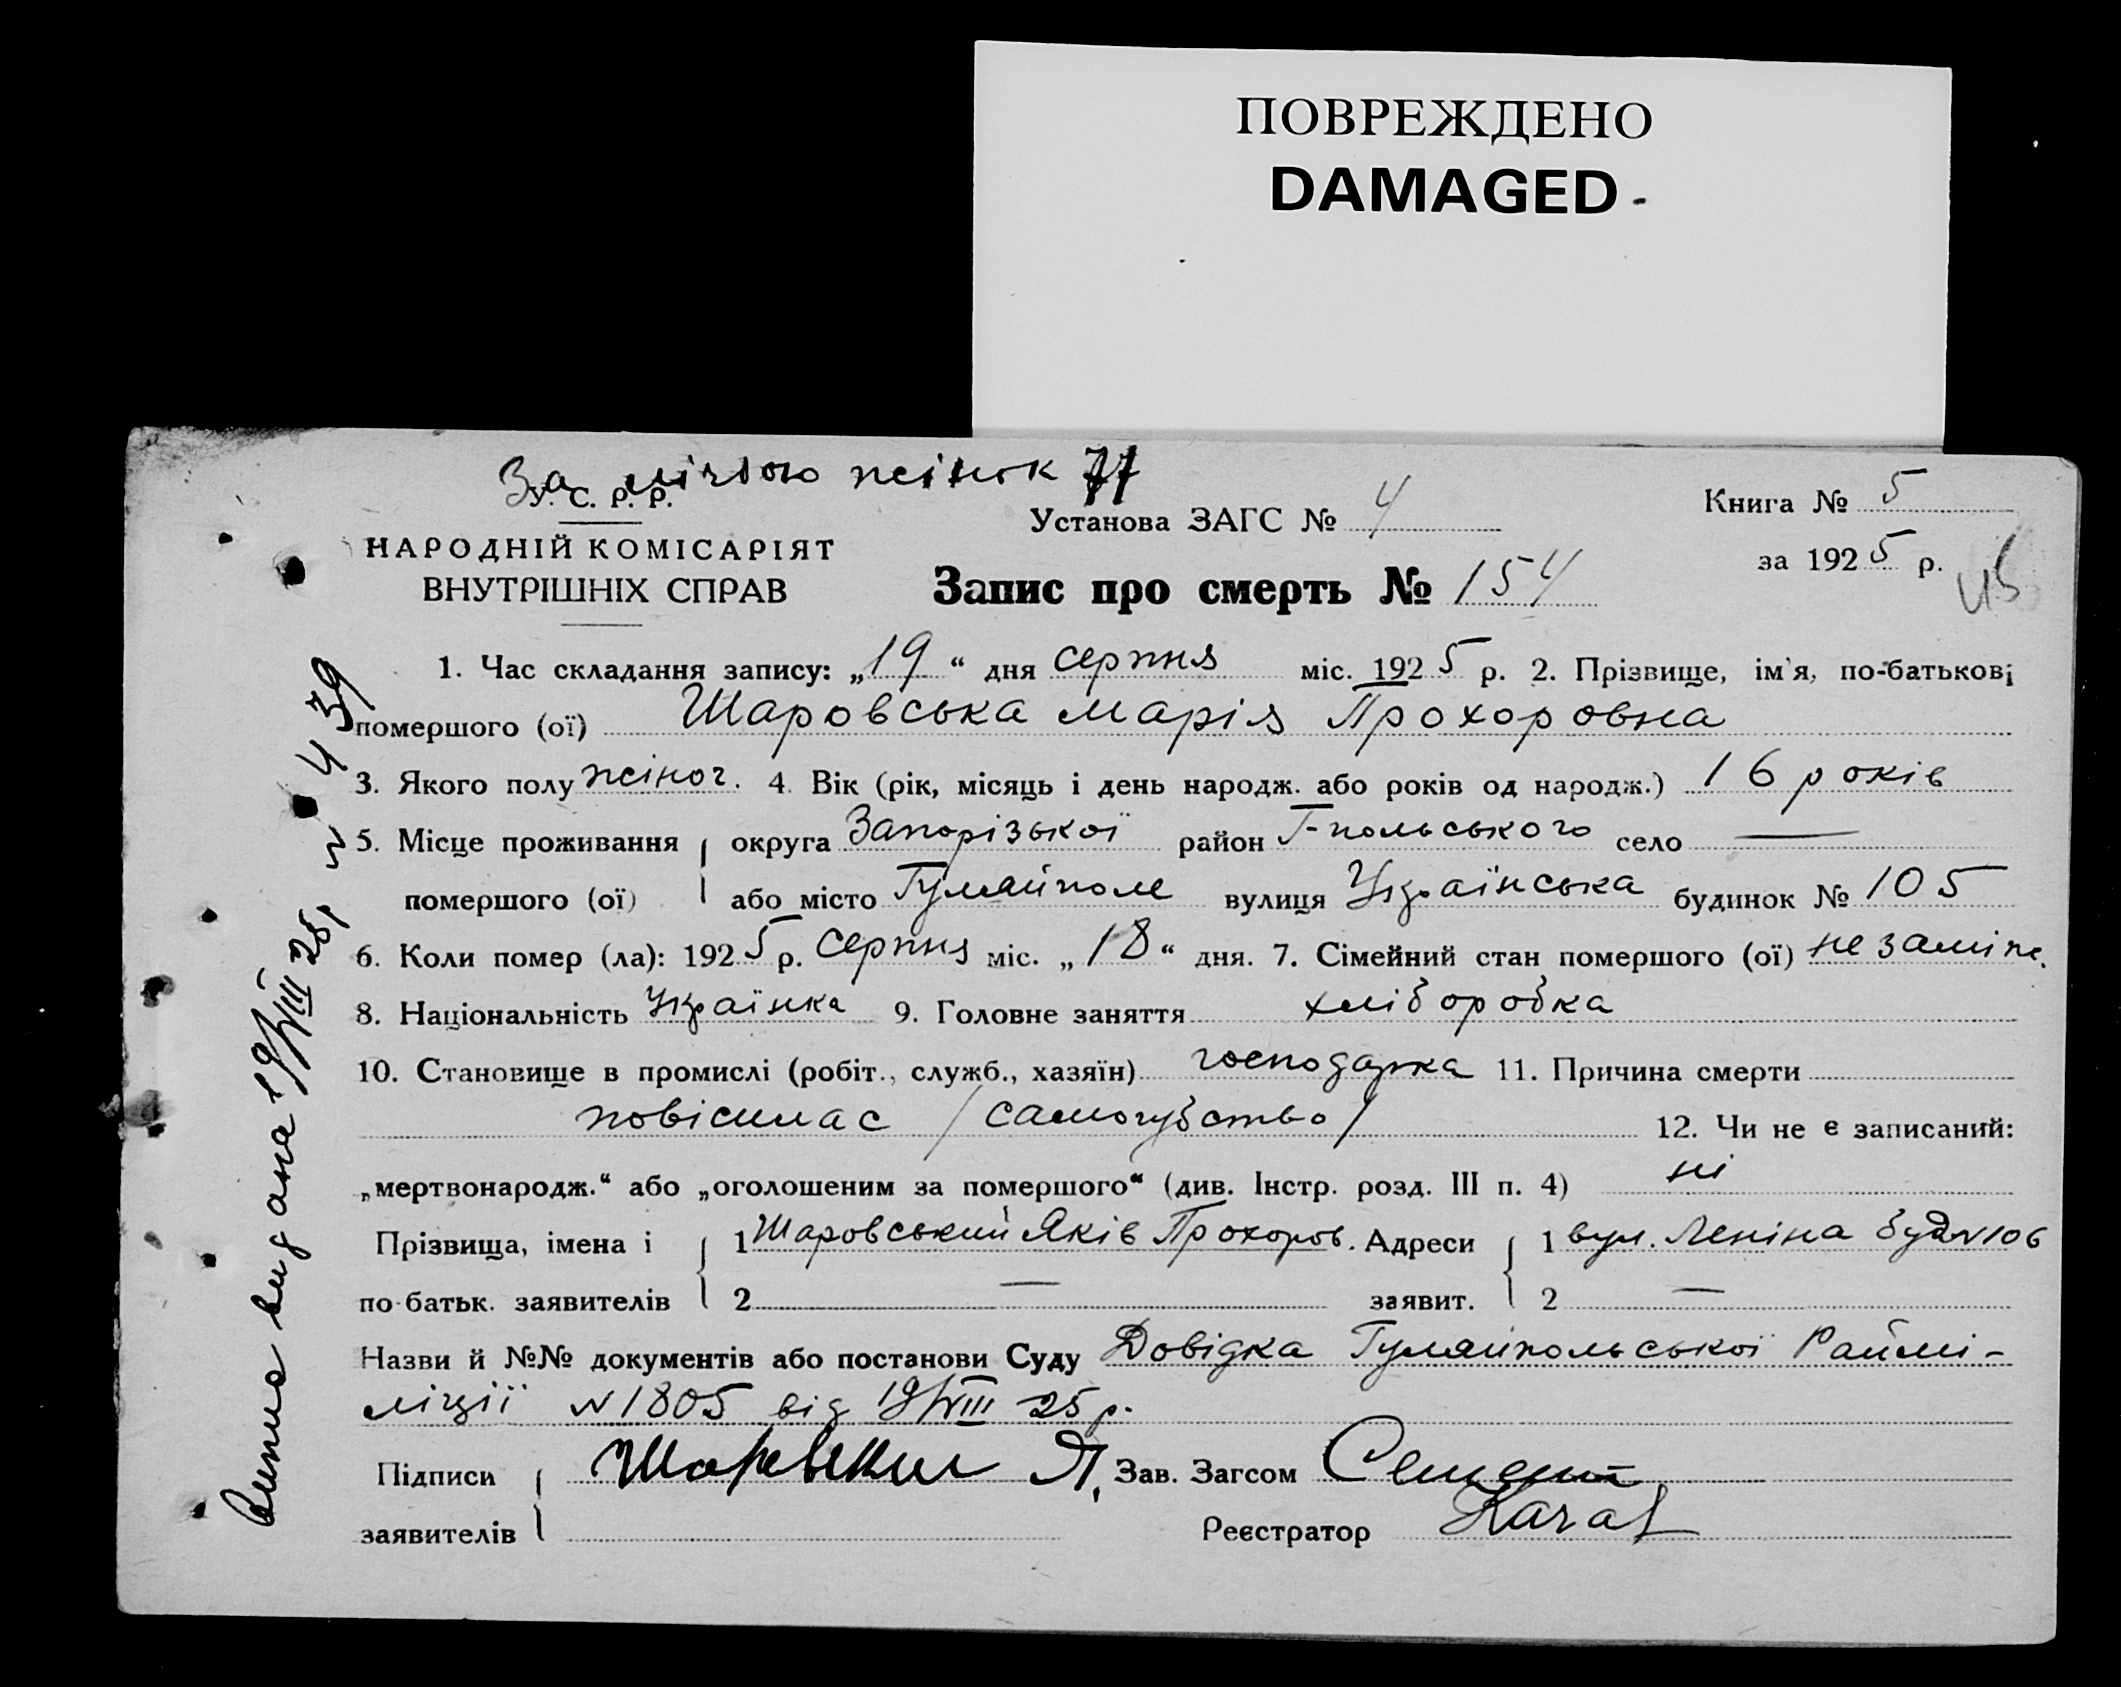 ПОВРЕЖДЕНО
DAMAGED
За лічбою жінок 77
У. С. Р. Р.
НАРОДНІЙ КОМІСАРІЯТ
ВНУТРІШНІХ СПРАВ
Установа ЗАГС № 4
Книга № 5
за 1925 р.
Запис про смерть № 154
1. Час складання запису: „19“ дня серпня міс. 1925 р. 2. Прізвище, ім'я, по-батькові
помершого (ої) Шаровська Марія Прохоровна
3. Якого полу жіноч. 4. Вік (рік, місяць і день народж. або років од народж.) 16 років
5. Місце проживання округа Запорізької район Г-польського село —
помершого (ої) або місто Гуляйполе вулиця Українська будинок № 105
6. Коли помер (ла): 1925 р. серпня міс. „18“ дня. 7. Сімейний стан помершого (ої) незаміж.
8. Національність Українка 9. Головне заняття хліборобка
10. Становище в промислі (робіт., служб., хазяїн) господарка 11. Причина смерти
повісилас /самогубство/ 12. Чи не є записаний:
„мертвонародж.“ або „оголошеним за помершого“ (див. Інстр. розд. III п. 4) ні
Прізвища, імена і 1 Шаровський Яків Прохоров. Адреси 1 вул. Леніна буд №106
по-батьк. заявителів 2 — заявит. 2 —
Назви й №№ документів або постанови Суду Довідка Гуляйпольської Раймі-
ліції №1805 від 19/VIII 25 р.
Підписи Шаровский Я. Зав. Загсом
заявителів Реєстратор
Випис видана 19/VIII 25 р. № 439